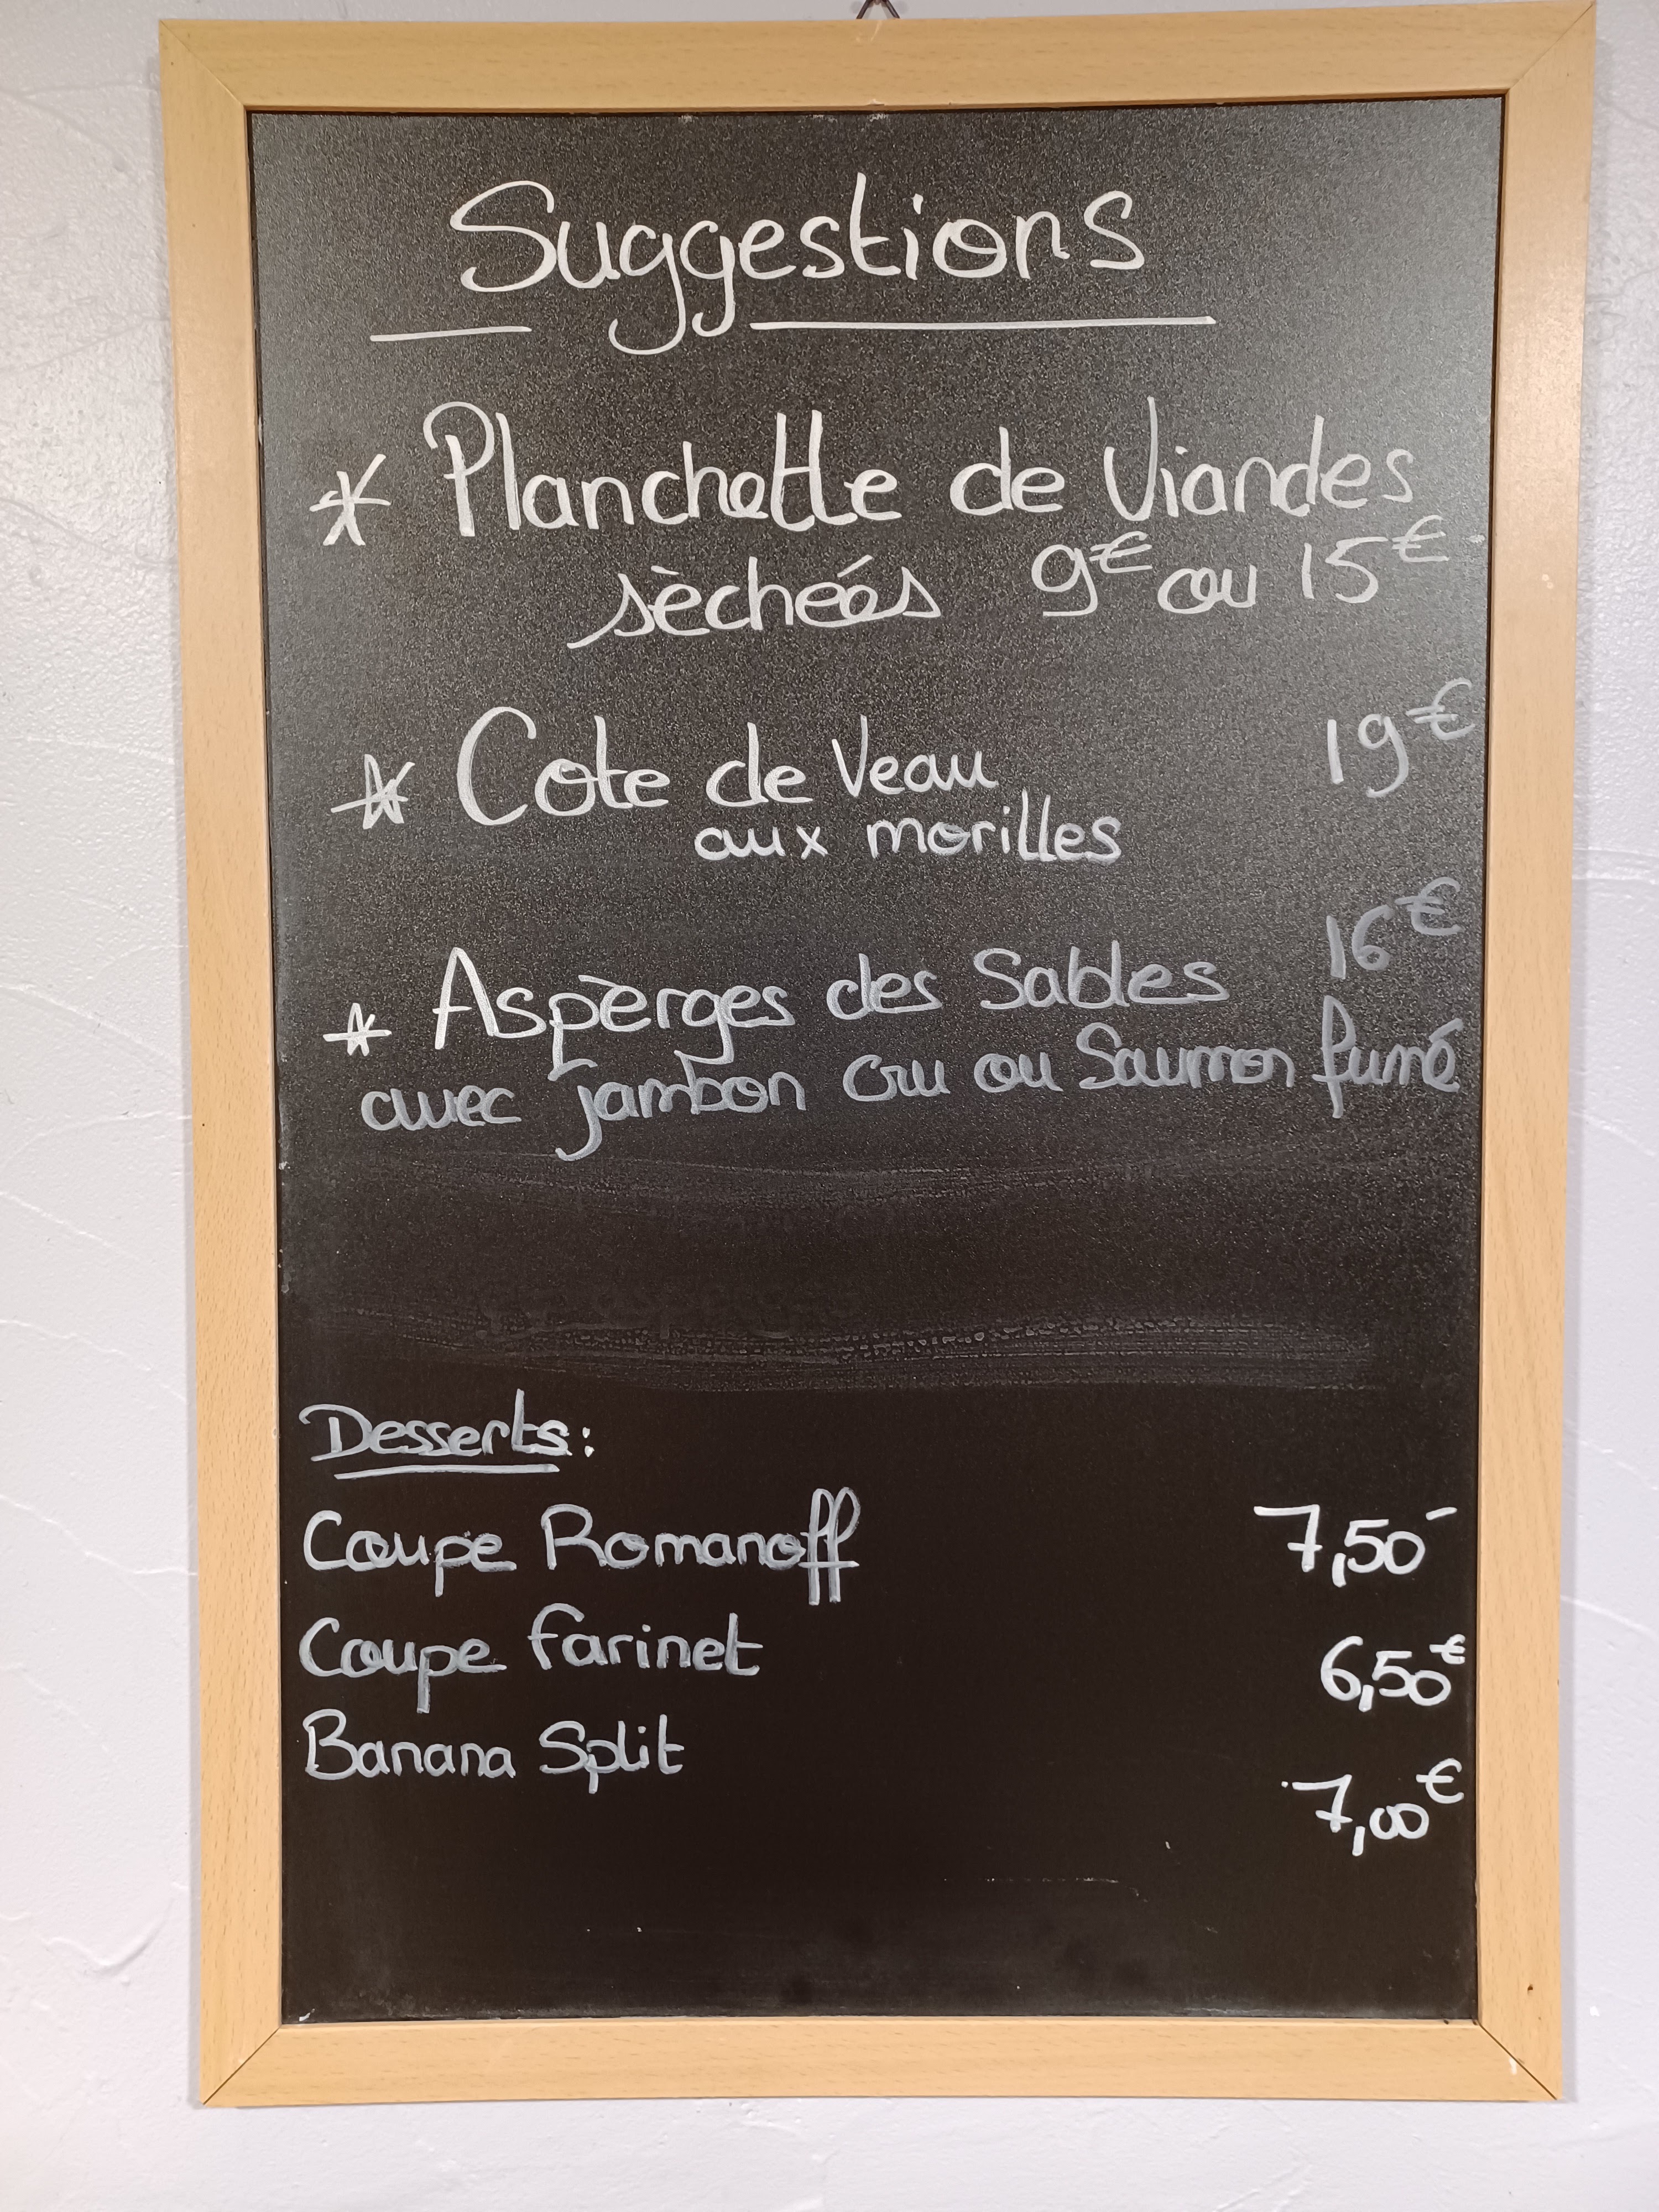 Suggestions
* Planchette de Viandes
sèchées 9€ ou 15€
* Cote de Veau 19€
aux morilles
* Aspèrges des Sables 16€
avec jambon cru ou Saumon fumé
Desserts:
Coupe Romanoff 7,50-
Coupe farinet 6,50€
Banana Split 7,00€